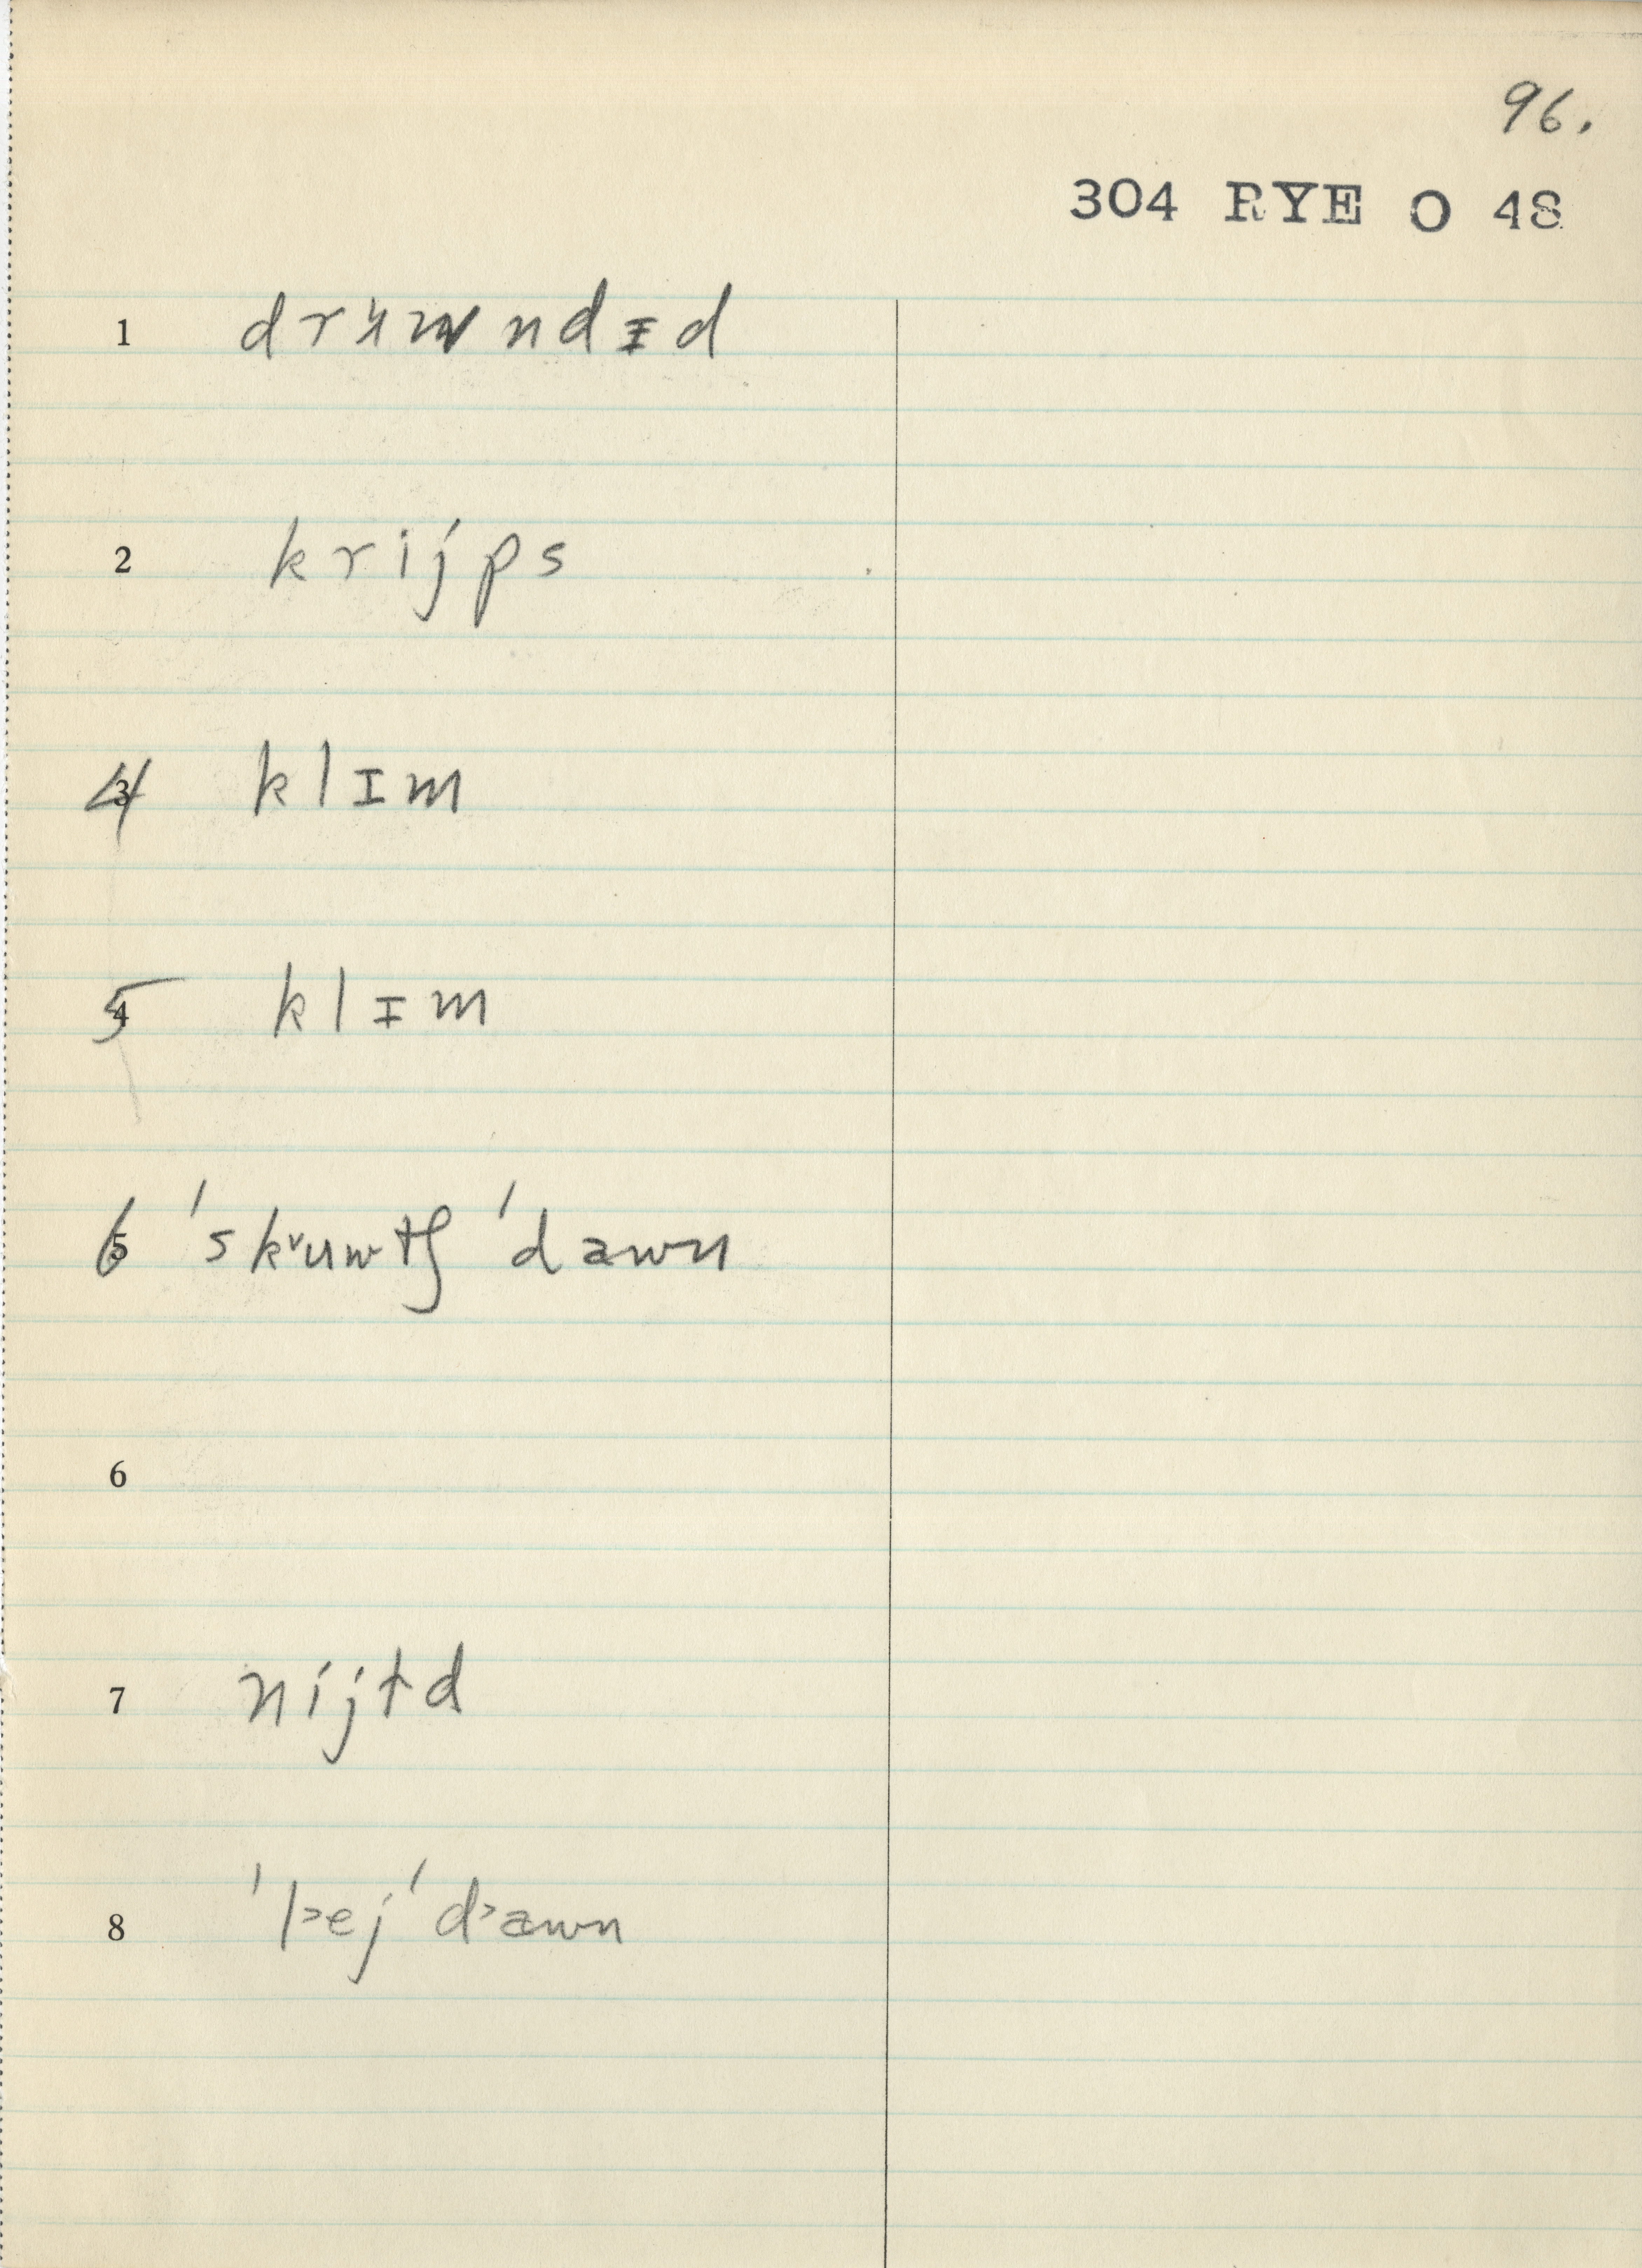 96.
304 RYE O 48
1 drʉwndɪd
2 krijps
4 klɪm
5 klɪm
6 'sk˅uwtʃ 'dawn
6
7 nijtd
8 'l˃ej 'd˃awn